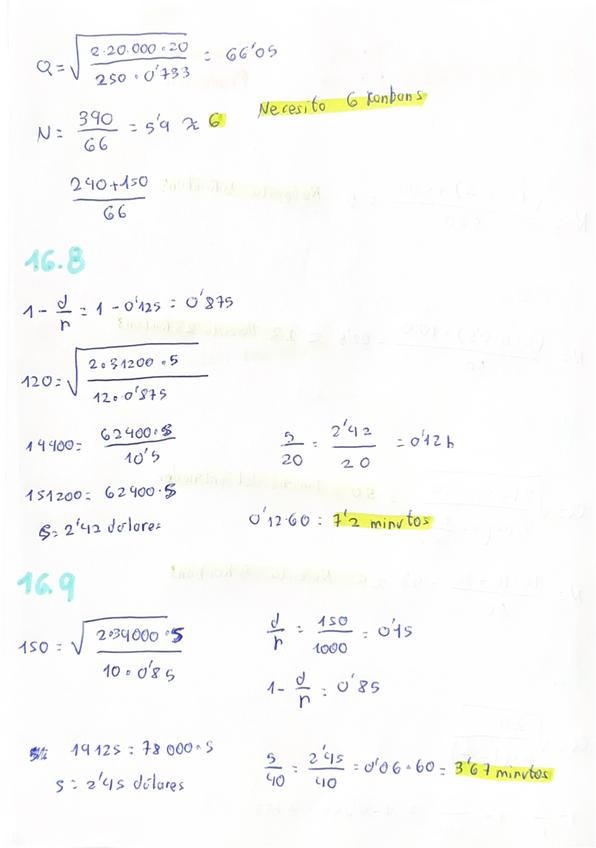 Q = √(2·20.000·20 / 250·0'733) = 66'05
N = 390/66 = 5'9 ≈ 6 Necesito 6 kanbans
240+150/66
16.8
1 - d/r = 1 - 0'125 = 0'875
120 = √(2·31200·S / 12·0'875)
14400 = 62400·S/10'5
S/20 = 2'42/20 = 0'12h
151200 = 62400·S
S = 2'42 dólares
0'12·60 = 7'2 minutos
16.9
150 = √(2·39000·S / 10·0'85)
d/r = 150/1000 = 0'15
1 - d/r = 0'85
19125 = 78000·S
S = 2'45 dólares
S/40 = 2'45/40 = 0'06·60 = 3'67 minutos